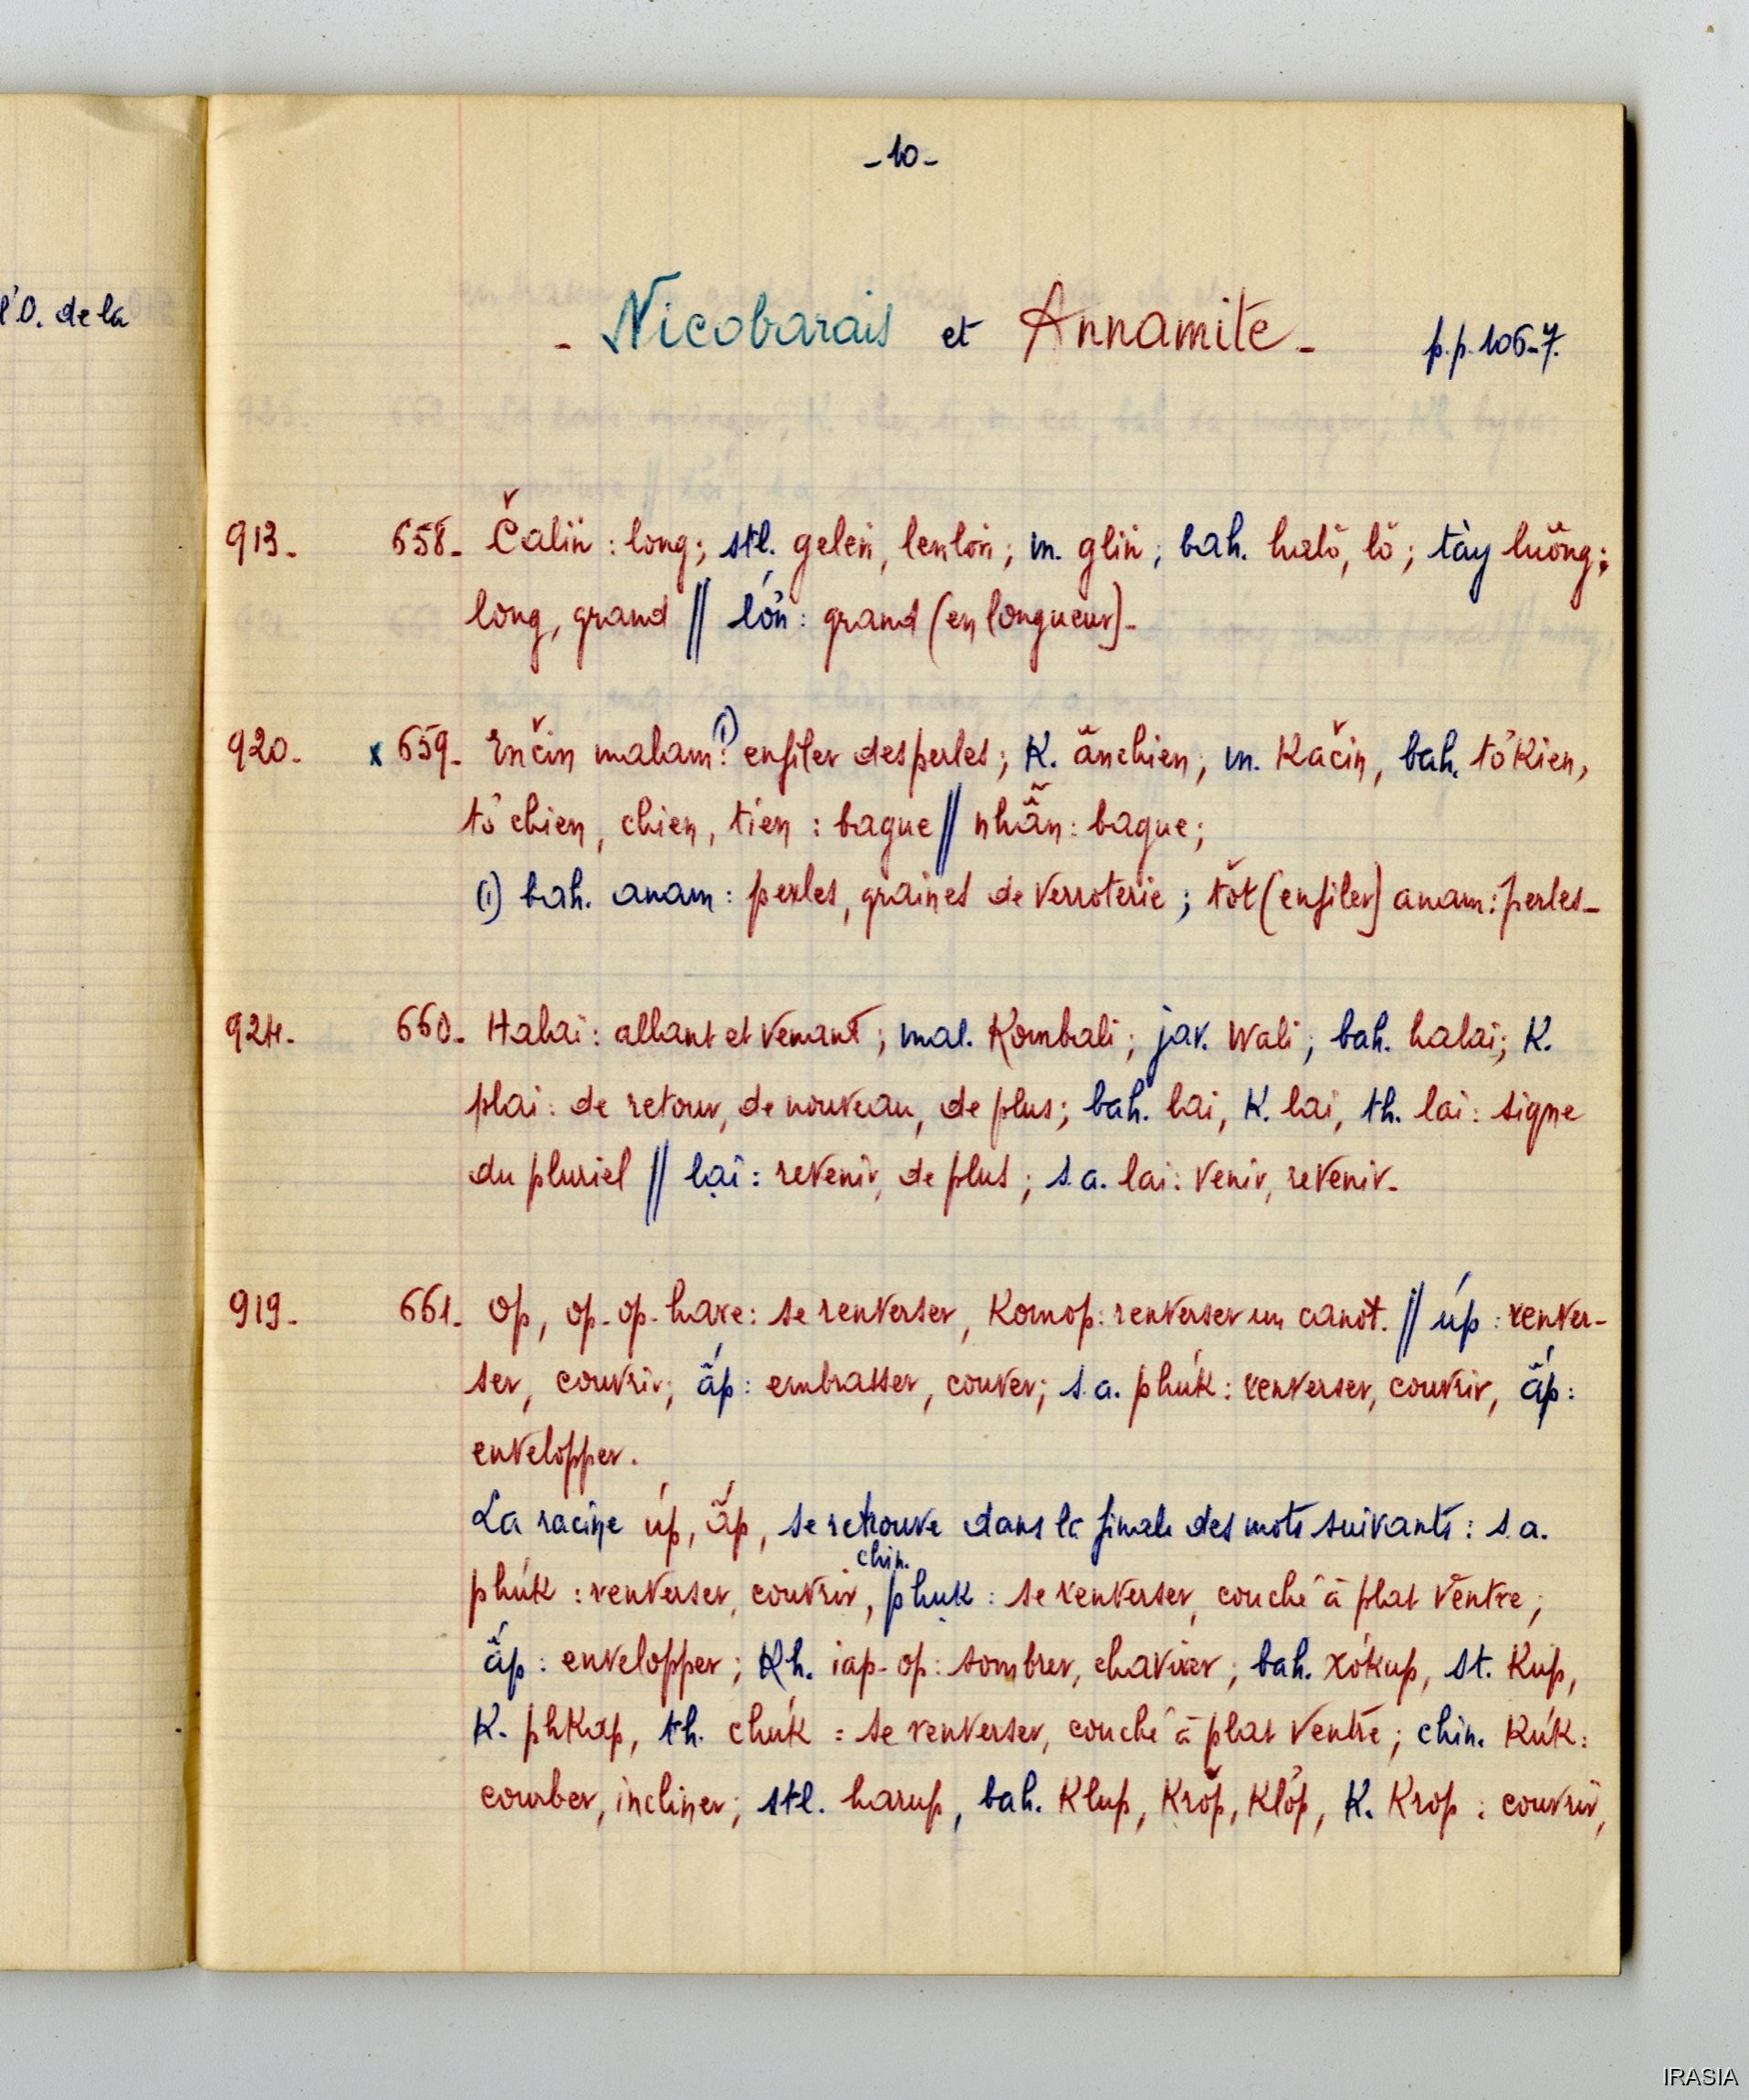 l'O. de la
-10-
- Nicobarais et Annamite - p.p. 106-7.
913. 658- Čaliṅ : long; stl. geleṅ, lenloṅ; m. gliṅ; bah. hrlŏ, lŏ; tày luông:
long, grand // lớn : grand (en longueur)-
920. x 659- Enčin malam(1): enfiler des perles; K. ănchien; m. Kačin, bah. tơKien,
tơ chien, chien, tien : bague // nhẫn : bague;
(1) bah. anam : perles, graines de verroterie; tŏt (enfiler) anam : perles-
924. 660- Halai : allant et venant; mal. Kombali; jav. Wali; bah. halai; K.
plai : de retour, de nouveau, de plus; bah. lai, K. lai, th. lai : signe
du pluriel // lại : revenir, de plus; s.a. lai : venir, revenir-
919. 661- Op, op-op-hare : se renverser, Komop : renverser un canot. // úp : renver-
ser, couvrir; ấp : embrasser, couver; s.a. phúk : renverser, couvrir, ấp :
envelopper.
La racine úp, ấp, se retrouve dans la finale des mots suivants : s.a.
phúk : renverser, couvrir, chin. phụk : se renverser, couché à plat ventre;
ấp : envelopper; Kh. iap-op : sombrer, chavirer; bah. xơkup, st. Kup,
K. phKap, th. chúk = se renverser, couché à plat ventre; chin. Kúk :
courber, incliner; stl. harup, bah. Klup, Krŏp, Klŏp, K. Krop : couvrir,
IRASIA